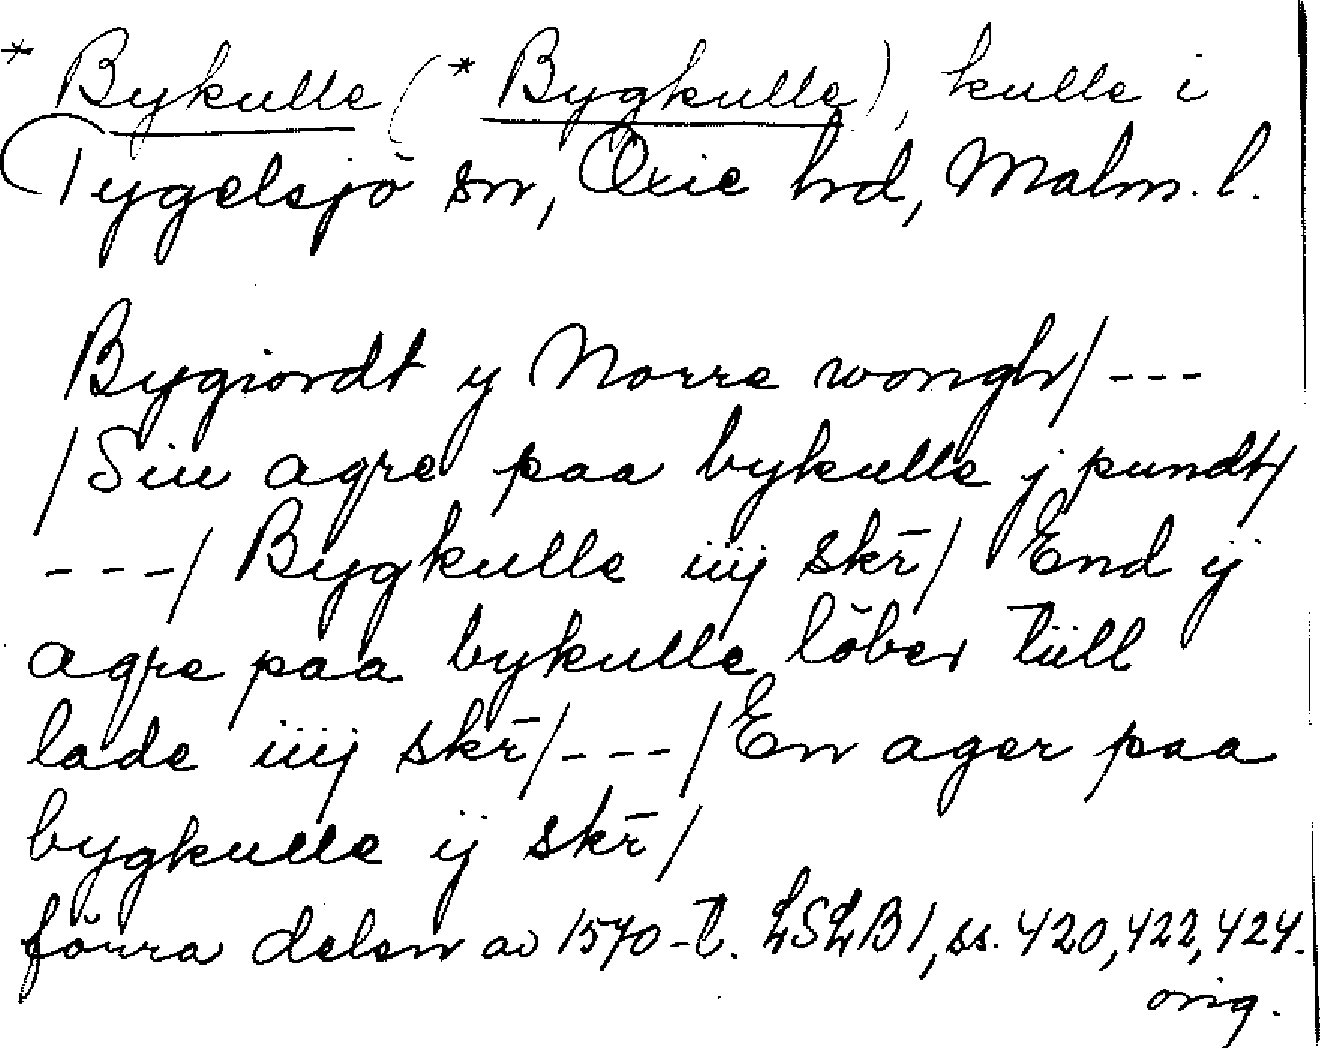 * Bykulle (* Bygkulle), kulle i
Tygelsjö sn, Oxie hd, Malm. l.
Bygiordt y Norre wongh/ ---
/Siu agre paa bykulle j pundt/
---/ Bygkulle iiij skr̄/ End ij
agre paa bykulle löber tiill
lade iiij skr̄/---/En ager paa
bygkulle ij skr̄/
förra delen av 1570-t. LSLB 1, ss. 420, 422, 424.
orig.